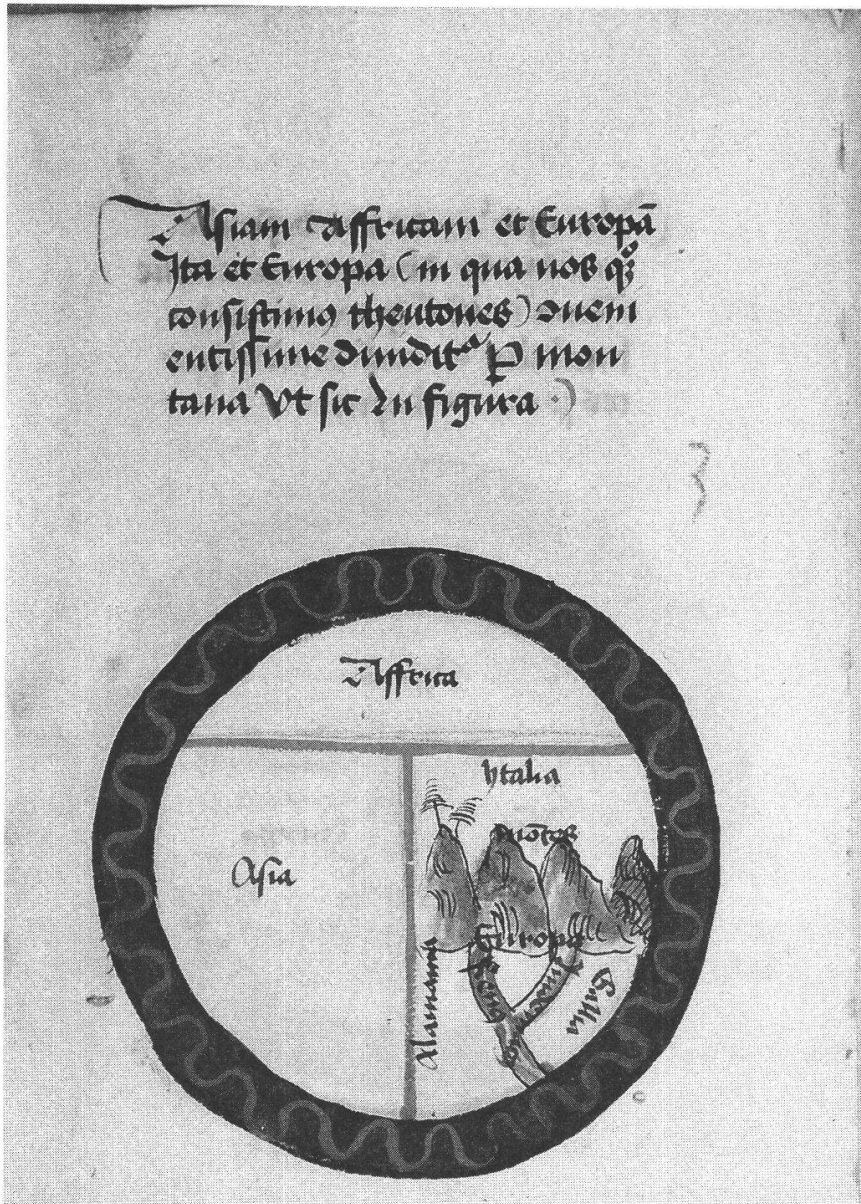 Asiam Affricam et Europā
Ita et Europa (in qua nos qͣꝫ
consistimus theutones) conueni
entissime diuidit᷑ ꝑ mon
tana Vt sic In figura
Affrica
ytalia
mōtes
Asia
Europa
Alamania
Gallia